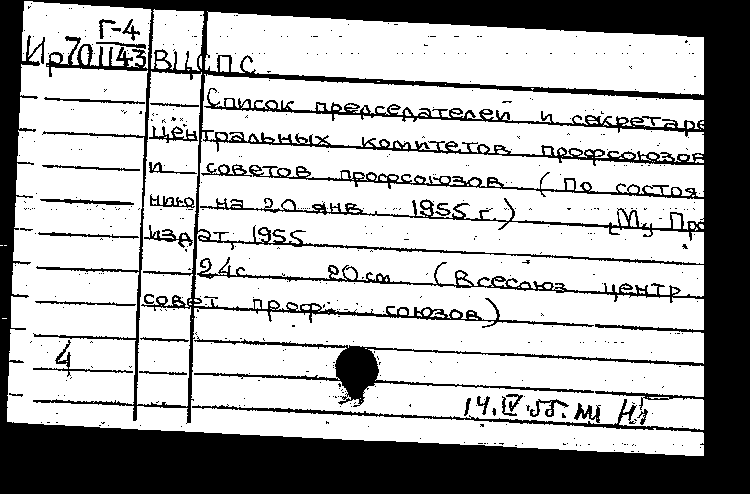 Г-4
Ир701143 ВЦСПС
Список председателей и секретаре
центральных комитетов профсоюзов
и советов профсоюзов (По состоя
нию на 20 янв. 1955 г.) [М., Про
издат, 1955
24с 20см (Всесоюз центр
совет проф. союзов)
4
14.IV.55.